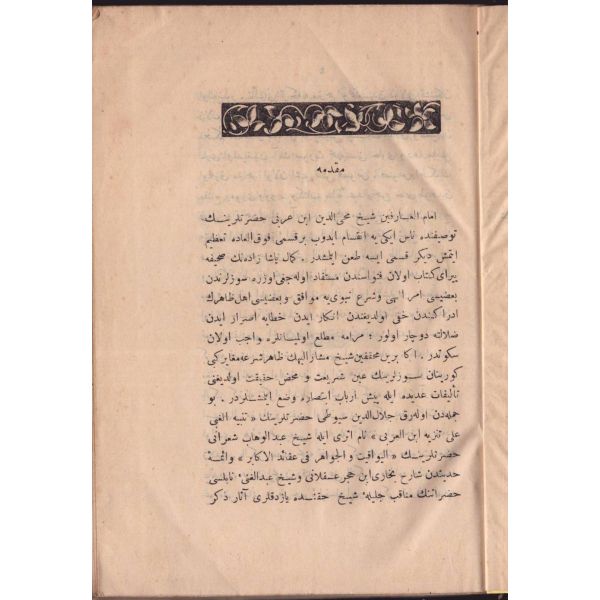 مقدمه
امام العارفین شیخ محی‌الدین ابن عربی حضرتلرینك
توصیفنده ناس ایکی یه انقسام ایدوب بر قسمی فوق العاده تعظیم
ایتمش دیگر قسمی ایسه طعن ایلمشدر . کمال پاشا زاده‌نك صحیفه
پیرای کتاب اولان فتواسندن مستفاد اوله جغی اوزره سوزلرندن
بعضیسی امر الهی و شرع نبوی‌یه موافق و بعضیسی اهل ظاهرك
ادراکندن خفی اولدیغندن انکار ایدن خطایه اصرار ایدن
ضلالته دوچار اولور ؛ مرامه مطلع اولمیانلره واجب اولان
سکوتدر . اکابرین محققین شیخ مشارالیهك ظاهر شرعه مغایر کبی
کورینان سوزلرینك عین شریعت و محض حقیقت اولدیغنی
تألیفات عدیده ایله پیش ارباب ابتصاره وضع ایتمشلردر . بو
جمله‌دن اوله‌رق جلال‌الدین سیوطی حضرتلرینك « تنبیه الغبی
علی تنزیه ابن العربی » نام اثری ایله شیخ عبدالوهاب شعرانی
حضرتلرینك « الیواقیت والجواهر فی عقائد الاکابر » وائمهٔ
حدیثدن شارح بخاری ابن حجر عسقلانی و شیخ عبدالغنی نابلسی
حضراتنك مناقب جلیلهٔ شیخ حقنده یازدقلری آثار ذکر